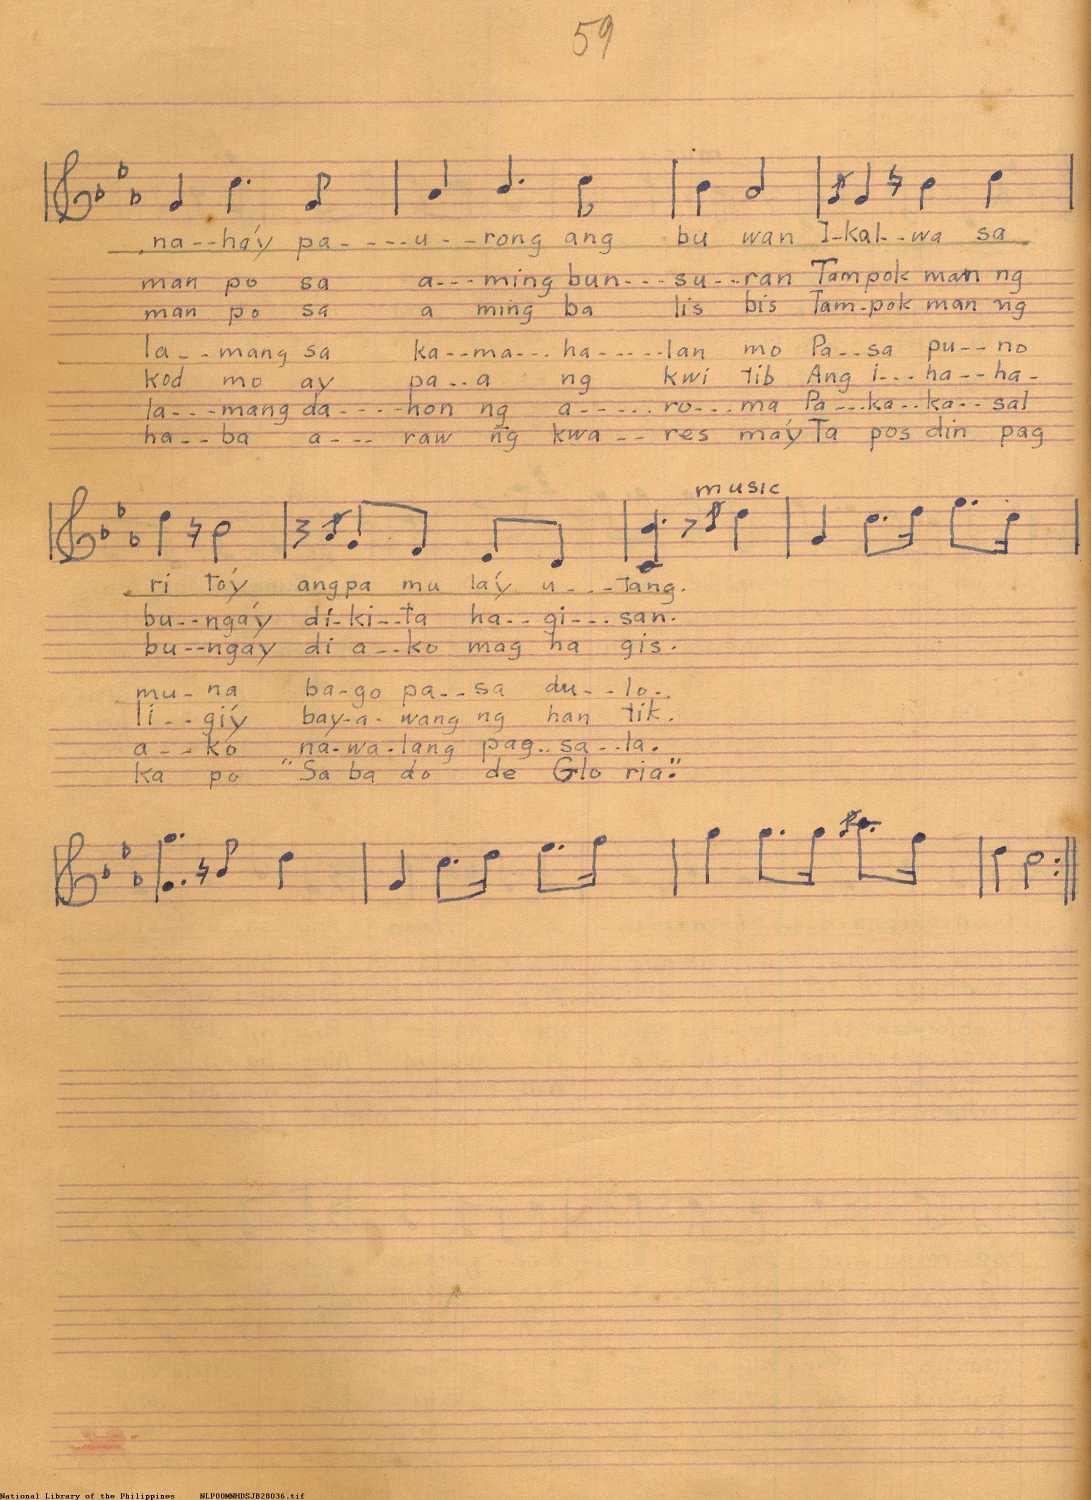 59
na--háy pa----u--rong ang bu wan I-kal--wa sa
man po sa a---ming bun---su--ran Tampok man ng
man po sa a ming ba lis bis Tam-pok man ng
la--mang sa ka--ma--- ha-----lan mo Pa--sa pu--no
kod mo ay pa--a ng kwi tib Ang i---ha--ha-
la---mang da----hon ng a-----ro---ma Pa---ka--ka--sal
ha--ba a--- raw ng kwa--res máy Ta pos din pag
music
ri tóy ang pa mu láy u---tang.
bu--ngáy di-ki--ta ha--gi---san.
bu--ngáy di a--ko mag ha gis.
mu-na ba-go pa--sa du--lo--.
li--gíy bay-a-wang ng han tik.
a--ko na-wa-lang pag--sa--la.
ka po "Sa ba do de Glo ria."
National Library of the Philippines NLP00MNHDSJB28036.tif